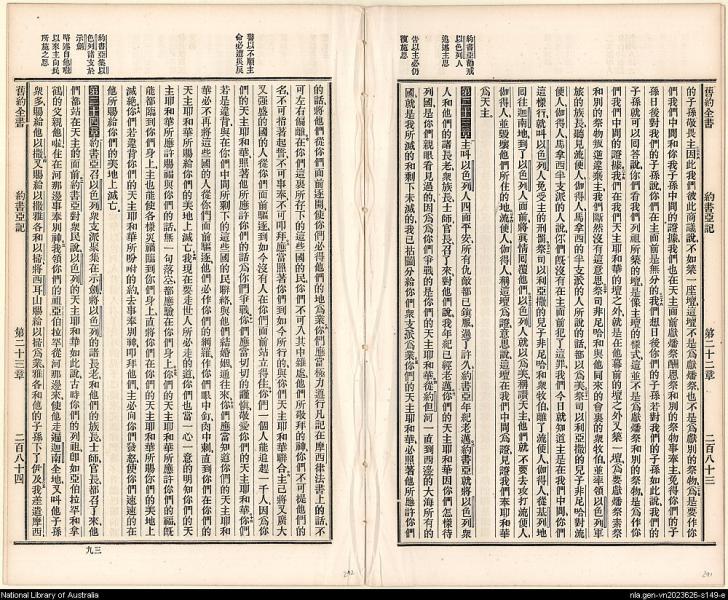 約書亞勸戒
以色列人
追述主恩
告以主必仍
復施恩
舊約全書
約書亞記
第二十二章
二百八十三
的子孫敬畏主因此我們彼此商議說不如築一座壇這壇不是爲獻燔祭也不是爲獻別的祭物爲是要作你
我們中間和你我子孫中間的證據
孫日後對我們的子孫說你們在主面前是無分的我們想日後你們的子孫若對我們的子孫如此說我們的
子孫就可以回答說你們看我們列祖所築的壇是像主壇的樣式這並不是爲獻燔祭和別的祭物是作
我們中間的證據我們在我們天主耶和華的壇之外就是在他幕前的壇之外又築一壇爲要獻燔祭素祭
和別的祭物叛逆違棄主我們斷然沒有這意思祭司非尼哈和與他同來的會衆的衆牧伯並率領以色列軍
族的族長聽見流便人伽得人馬拿西半支派的人所說的話都以爲美祭司以利亞撒的兒子非尼哈對流
便人伽得人馬拿西半支派的人說你們既沒有在主面前犯了這罪我們今日就知道主是在我們中間你們
這樣行就叫以色列人免受主的刑罰祭司以利亞撒的兒子非尼哈和衆牧伯離了流便人伽得人從基列地
同往迦南地到了以色列人面前將實情回覆他們以色列人就以爲美稱讚天主他們就不要去攻打流便人
伽得人並毀壞他們所住的地流便人伽得人稱這壇爲證意思說這壇在我們中間爲證見證我們奉耶和華
爲天主
第二十三章主叫以色列人四面平安所有仇敵都已鎮服過了許久約書亞年紀老邁約書亞就將以色列衆
人和他們的諸長老衆族長士師官長召了來對他們說我年紀已經老邁你們的天主耶和華因你們怎樣待
列國是你們親眼看見過的因爲爲你們爭戰的是你們的天主耶和華從約但河一直到西邊的大海所有的
國就是我所滅的和剩下未滅的我已拈鬮分給你們衆支派爲業你們的天主耶和華必照著他所應許你們
誓以不順主
命必遭災反
約書亞集以
色列諸支於
示劍
略述自他喇
以來主向民
所施之恩
舊約全書
約書亞記
第二十三章
二百八十四
的話將他們從你們面前逐開使你們必得他們的地爲業你們應當極力遵行凡記在摩西律法書上的話不
可左右偏離在你們這裏所存下的這些國的民你們不可入其中羅
名不可指著起誓不可事奉不可叩拜應當照著你們到如今所行的與你們天主耶和華聯合主已將又廣大
又強盛的國的人從你們面前驅逐到如今沒有人在你們面前站立得住你們一個人能追起一千人因爲你
們的天主耶和華照著他所應許你們的話爲你們爭戰你們應當切切的謹慎敬愛你們的天主耶和華
若是違背與在你們中間所剩下的這些國的民聯絡與他們結婚姻通往來你們應當知道你們的天主耶和
華必不再將這些國的人從你們面前驅逐他們必作你們的網羅作你們眼中
天主耶和華所應許賜給你們的美地上滅亡我現在要走世人所必走的道你們也當一心一意的明知你們的天
主耶和華所應許賜福與你們的話無一句落空都應驗在你們身上你們的天主耶和華所應許你們的福旣
能都臨到你們身上主也能使各樣災禍臨到你們身上直將你們在你們的天主耶和華所賜你們的美地上
滅絕你們若違背你們的天主耶和華所吩咐的約去事奉別神叩拜他們主必向你們發怒使你們速速的在
他所賜給你們的美地上滅亡
第二十四章約書亞召以色列衆支派聚集在示劍將以色列的諸長老和他們的族長士師官長都召了來他
們都站在天主的面前約書亞對衆民說以色列的天主耶和華如此說古時你們的列祖卽如亞伯拉罕和拿
鶴的父親他喇住在河那邊事奉別神我領你們的祖亞伯拉罕從河那邊來使他走遍迦南全地又叫他子孫
衆多賜給他以撒又賜給以撒雅各和以掃將西耳山賜給以掃爲業雅各和他的子孫下了伊及我差遣摩西
三九
National Library of Australia
nla.gen-vn2023626-s149-e